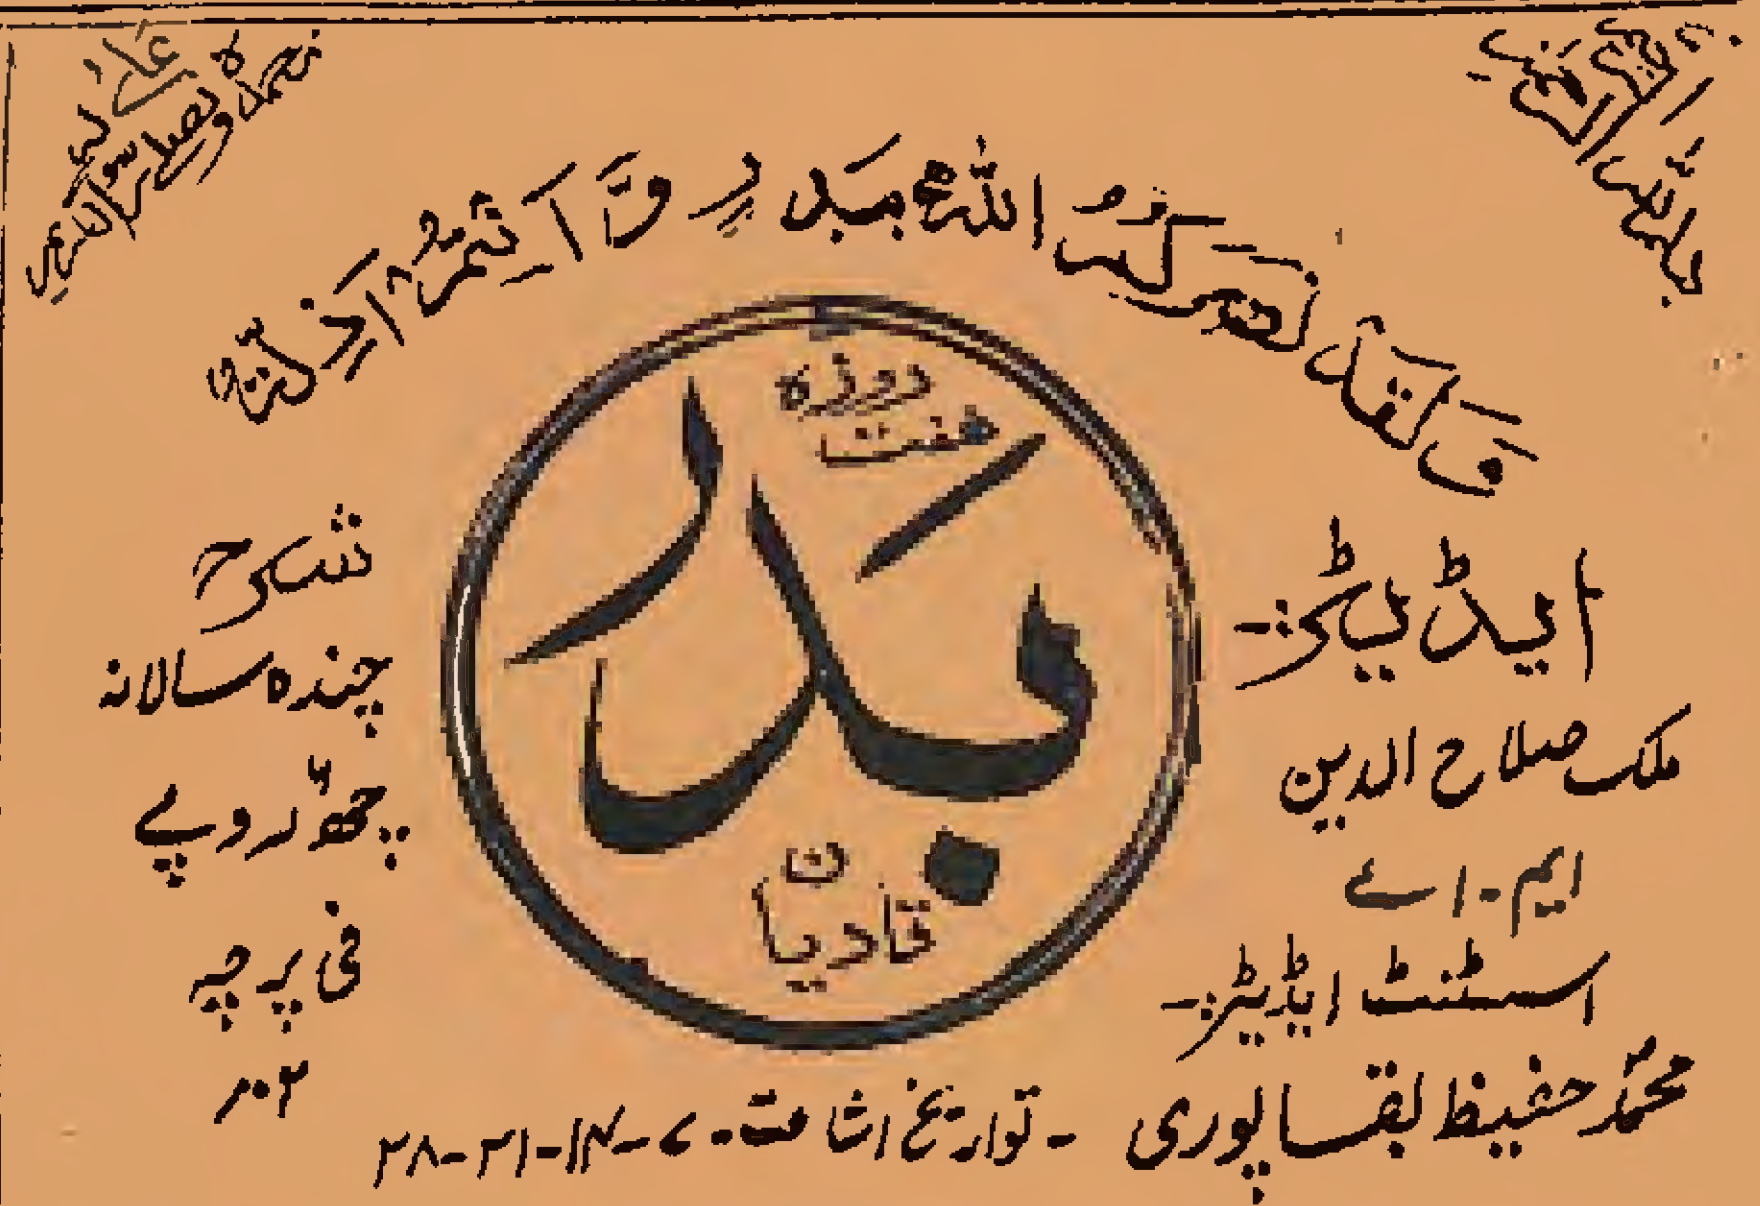 بسم اللہ الرحمن الرحیم
نحمدہ ونصلی علیٰ رسولہ الکریم
وَلَقَدْ نَصَرَكُمُ اللّٰهُ بِبَدْرٍ وَّاَنْتُمْ اَذِلَّةٌ
ہفت روزہ
بَدر
قادیان
ایڈیٹر:-
ملک صلاح الدین
ایم-اے
اسسٹنٹ ایڈیٹر:-
محمد حفیظ بقاپوری
شرح
چندہ سالانہ
چھ روپے
فی پرچہ
تواریخ اشاعت- ۷-۱۴-۲۱-۲۸